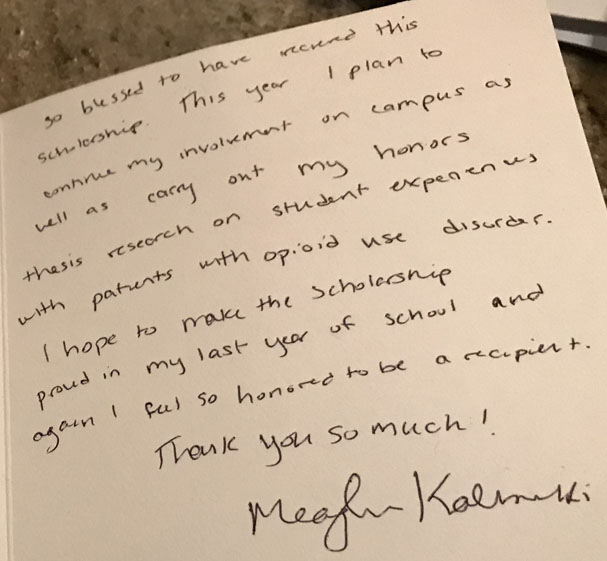 so blessed to have received this
scholarship. This year I plan to
continue my involvement on campus as
well as carry out my honors
thesis research on student experiences
with patients with opioid use disorder.
I hope to make the scholarship
proud in my last year of school and
again I feel so honored to be a recipient.
Thank you so much!